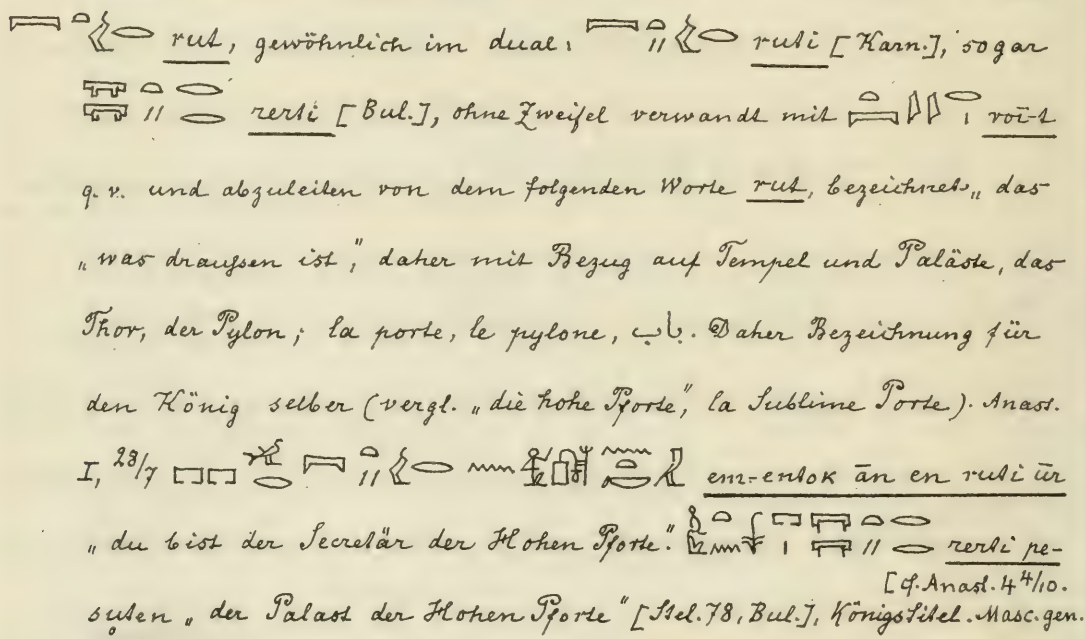 rut, gewöhnlich im dual: ruti [Karn.], sogar
rerti [Bul.], ohne Zweifel verwandt mit roï-t
q. v. und abzuleiten von dem folgenden Worte rut, bezeichnet „das
„was draussen ist“, daher mit Bezug auf Tempel und Paläste, das
Thor, der Pylon; la porte, le pylone, باب. Daher Bezeichnung für
den König selber (vergl. „die hohe Pforte“, la Sublime Porte). Anast.
I, 28/7 em-entok ān en ruti ūr
„du bist der Secretär der Hohen Pforte.“ rerti pe-
[cf. Anast. 4 4/10.
suten „der Palast der Hohen Pforte“ [Stel. 78, Bul.], Königstitel. Masc. gen.